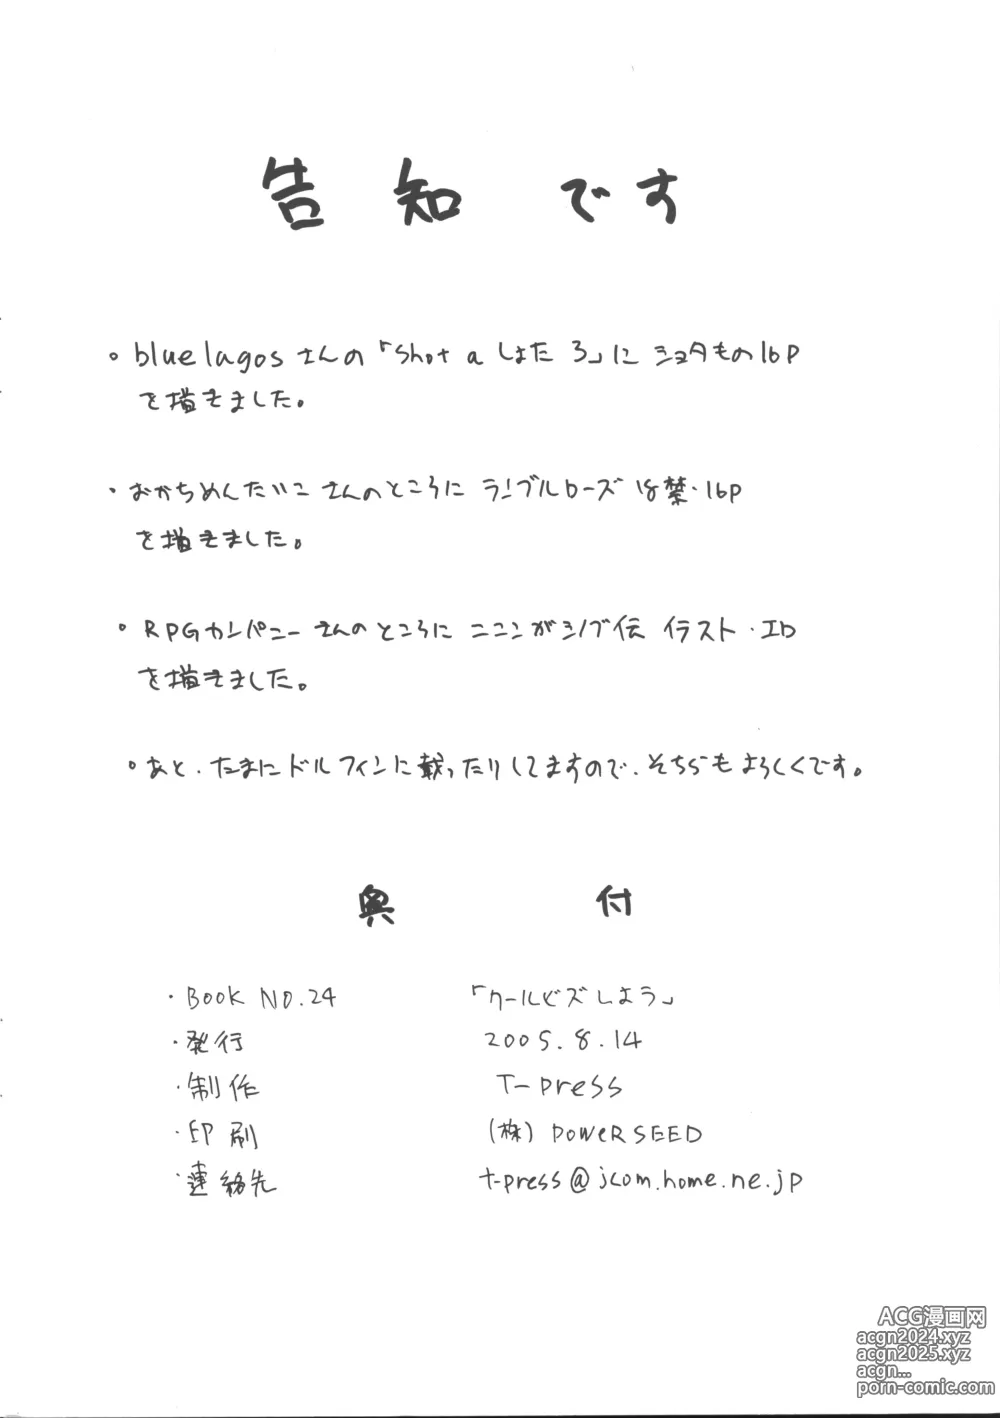 告知です
。bluelagosさんの「Shot a しょたろ」に ショタもの16P
を描きました。
・おかちめんたいこ さんのところに ランブルローズ 18禁・16P
を描きました。
・RPGカンパニー さんのところに ニニンがシノブ伝 イラスト・エロ
を描きました。
。あと、たまにドルフィンに載ったりしてますので、そちらもよろしくです。
奥付
・BOOK NO.24 「クールビズしよう」
・発行 2005.8.14
・制作 T-press
・印刷 (株) POWERSEED
・連絡先 t-press@jcom.home.ne.jp
ACG漫画网
acgn2024.xyz
acgn2025.xyz
acgn...
porn-comic.com